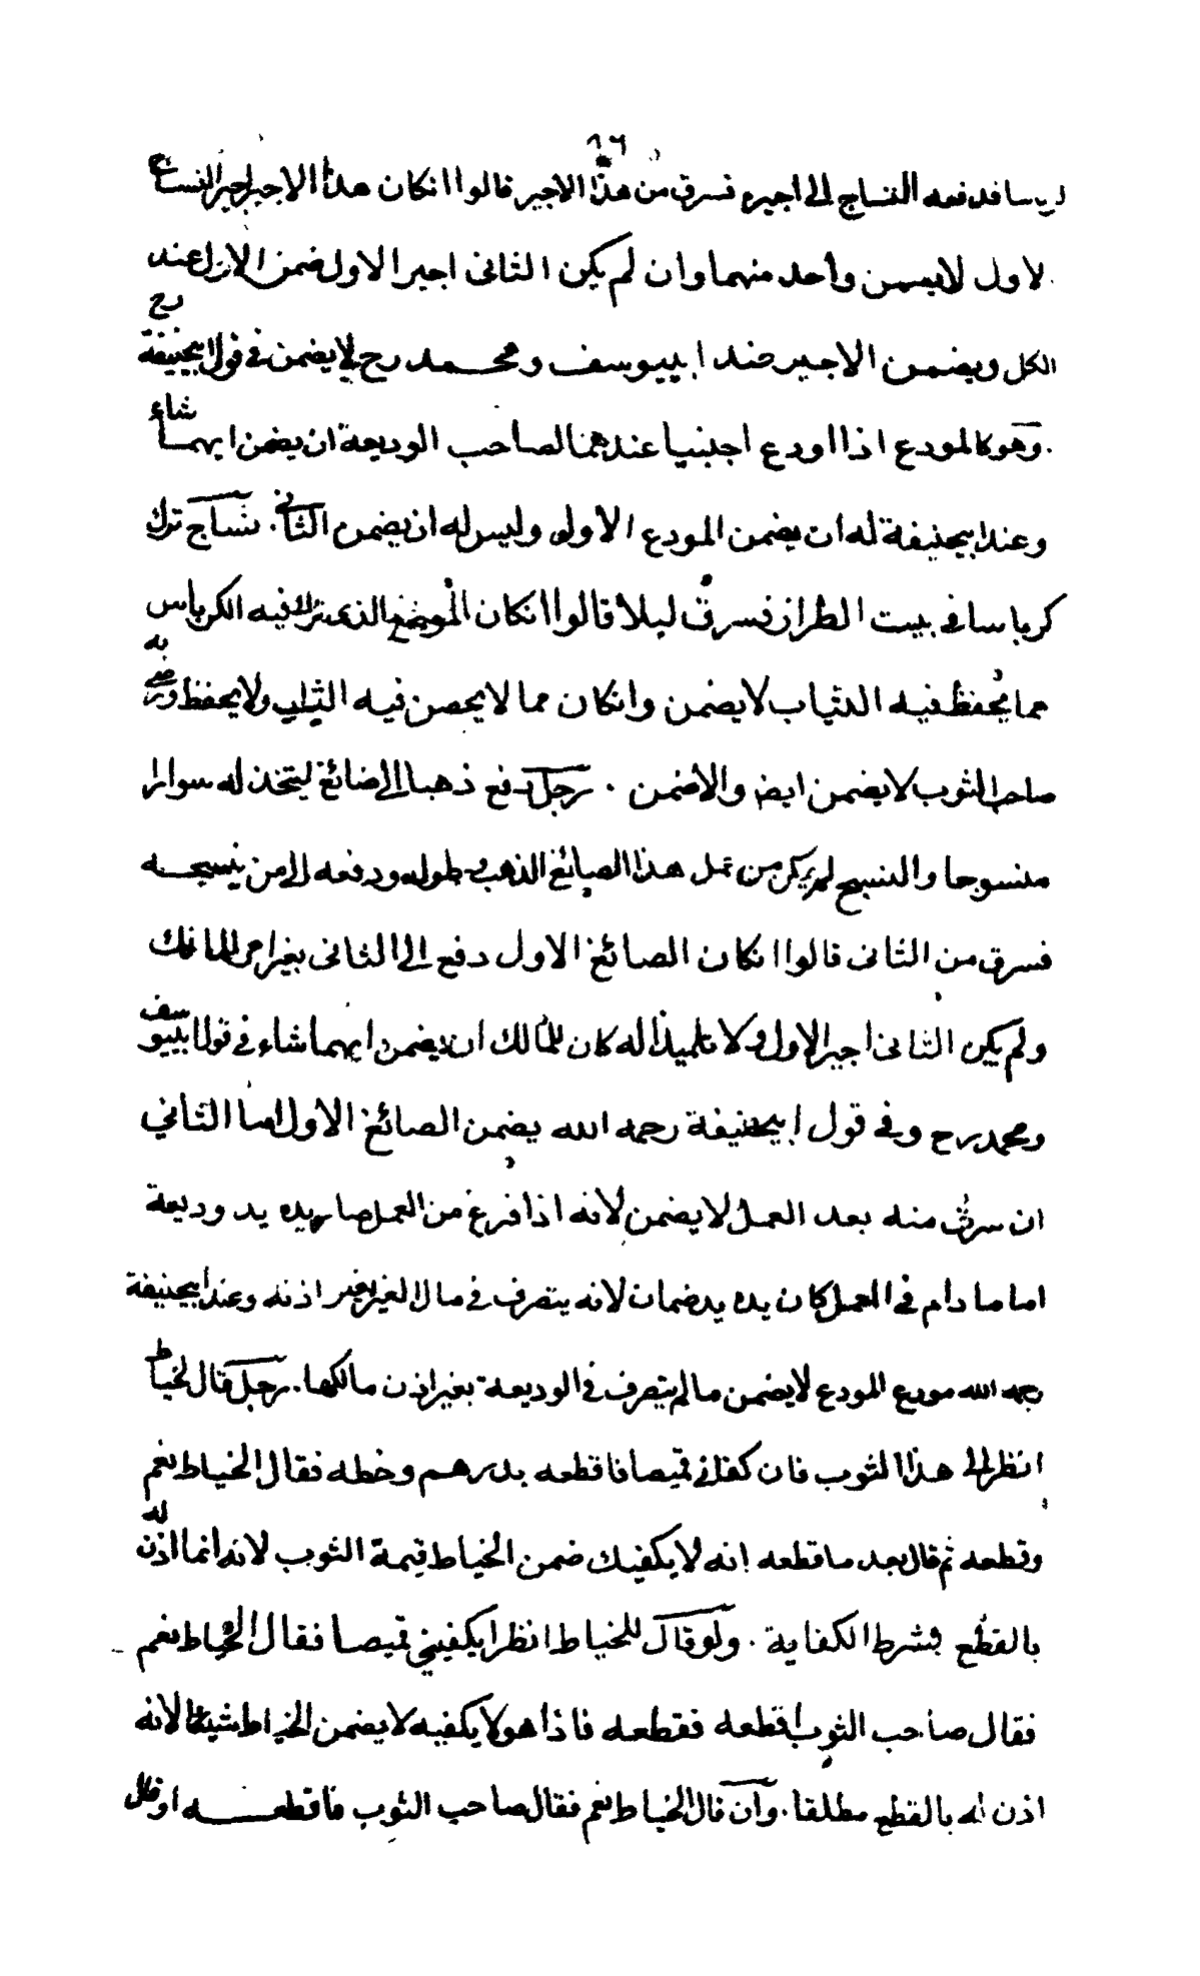 ٨٦
فدفعه النساج الى اجيره فسرق من هذا الاجير قالوا انكان هذا الاجير اجير النساج
لاول لايضمن واحد منهما وان لم يكن الثانى اجير الاول ضمن الاول عند
الكل ويضمن الاجير عند ابييوسف ومحمد رح لايضمن فى قول ابيحنيفة رح
وهو كالمودع اذا اودع اجنبيا عندهما لصاحب الوديعة ان يضمن ايهما شاء
وعند ابيحنيفة له ان يضمن المودع الاول وليس له ان يضمن الثانى . نساج ترك
كرباسا فى بيت الطراز فسرق ليلا قالوا انكان الموضع الذى ترك فيه الكرباس
مما يحفظ فيه الثياب لا يضمن وانكان مما لا يحصن فيه الثياب ولا يحفظ ورضى به
صاحب الثوب لا يضمن ايض والاضمن . رجل دفع ذهبا الى صائغ ليتخذ له سوارا
منسوجا والنسج لم يكن من عمل هذا الصائغ الذهب طوله ودفعه الى من ينسجه
فسرق من الثانى قالوا انكان الصائغ الاول دفع الى الثانى بغير امر المالك
ولم يكن الثانى اجير الاول ولا تلميذا له كان للمالك ان يضمن ايهما شاء فى قول ابييوسف
ومحمد رح وفى قول ابيحنيفة رحمه الله يضمن الصائغ الاول اما الثانى
ان سرق منه بعد العمل لا يضمن لانه اذا فرغ من العمل صار يده يد وديعة
اما ما دام فى العمل كان يده يد ضمان لانه يتصرف فى مال الغير بغير اذنه وعند ابيحنيفة
رحمه الله مودع المودع لا يضمن مالم يتصرف فى الوديعة بغير اذن مالكها . رجل قال لخياط
انظر الى هذا الثوب فان كفانى قميصا فاقطعه بدرهم وخطه فقال الخياط نعم
وقطعه ثم قال بعد ما قطعه انه لا يكفيك ضمن الخياط قيمة الثوب لانه انما اذن له
بالقطع بشرط الكفاية . ولو قال للخياط انظر ايكفينى قميصا فقال الخياط نعم
فقال صاحب الثوب اقطعه فقطعه فاذا هو لا يكفيه لا يضمن الخياط شيئا لانه
اذن له بالقطع مطلقا . وان قال الخياط نعم فقال صاحب الثوب فاقطعه او قال